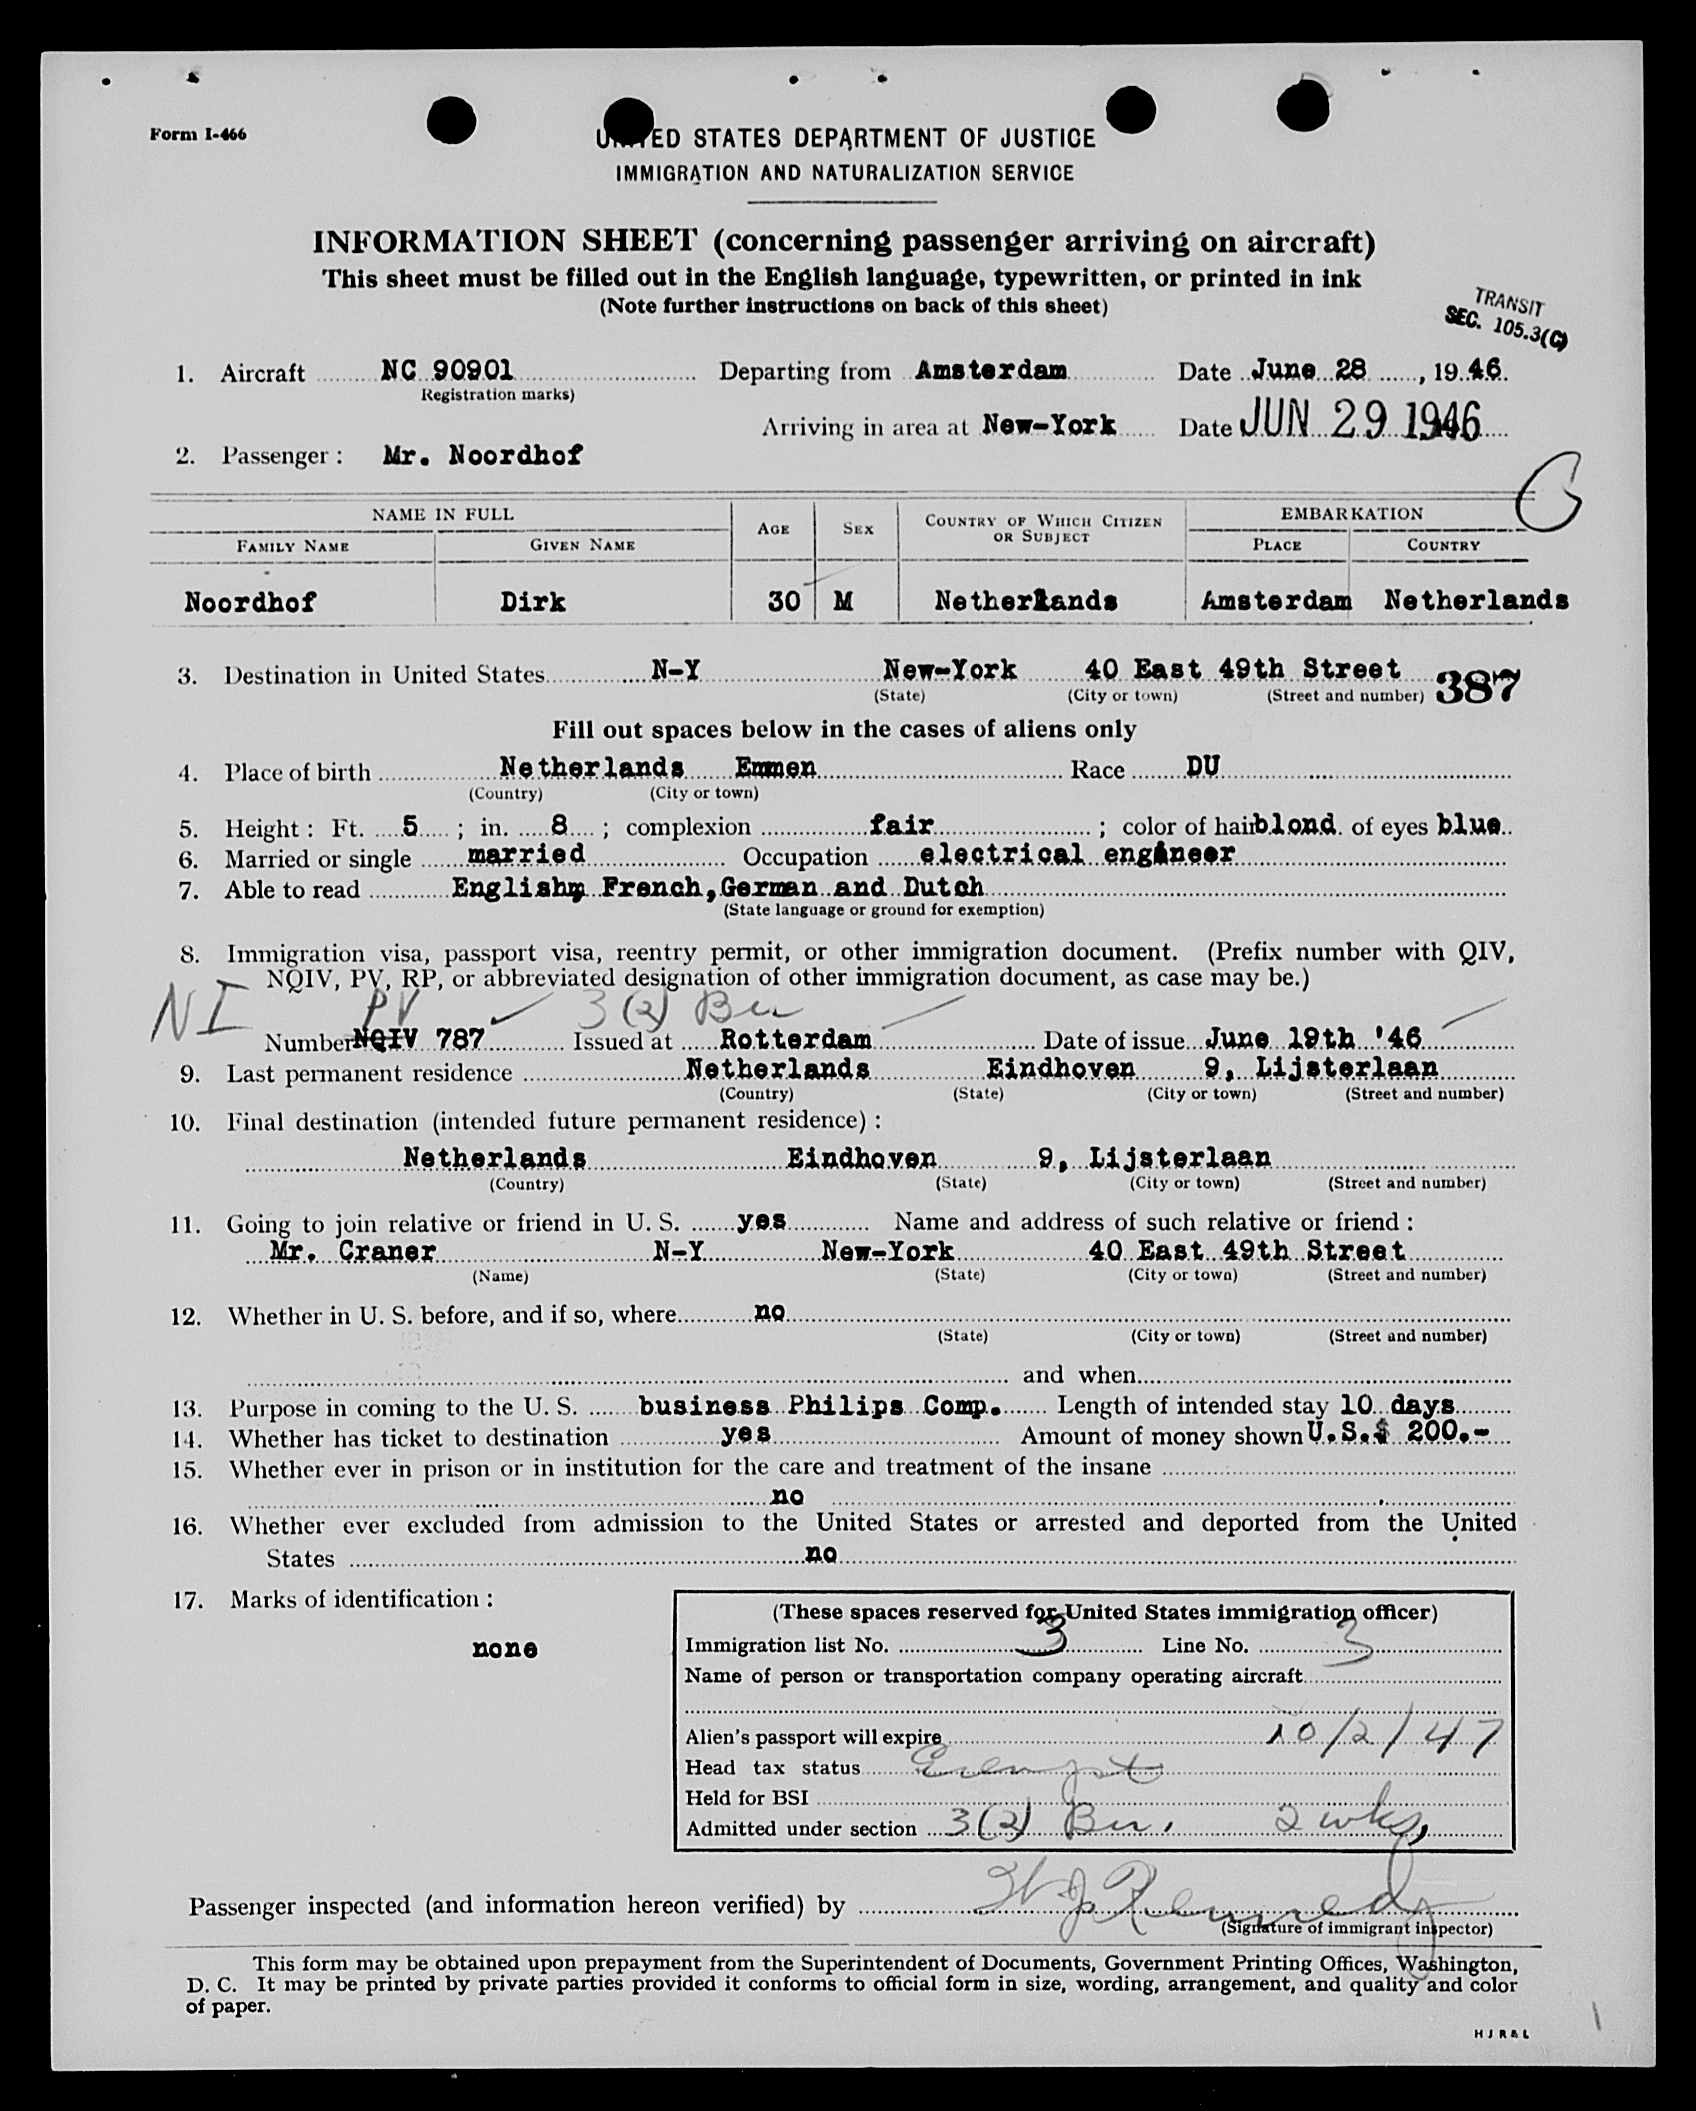 Form I-466
UNITED STATES DEPARTMENT OF JUSTICE
IMMIGRATION AND NATURALIZATION SERVICE
INFORMATION SHEET (concerning passenger arriving on aircraft)
This sheet must be filled out in the English language, typewritten, or printed in ink
(Note further instructions on back of this sheet)
TRANSIT
SEC. 105.3(C)
1. Aircraft NC 90901 Departing from Amsterdam Date June 28, 1946.
Registration marks)
Arriving in area at New-York Date JUN 29 1946
2. Passenger: Mr. Noordhof
NAME IN FULL AGE SEX COUNTRY OF WHICH CITIZEN OR SUBJECT EMBARKATION
FAMILY NAME GIVEN NAME PLACE COUNTRY
Noordhof Dirk 30 M Netherlands Amsterdam Netherlands
3. Destination in United States N-Y New-York 40 East 49th Street 387
(State) (City or town) (Street and number)
Fill out spaces below in the cases of aliens only
4. Place of birth Netherlands Emmen Race DU
(Country) (City or town)
5. Height: Ft. 5; in. 8; complexion fair; color of hair blond of eyes blue
6. Married or single married Occupation electrical engineer
7. Able to read English, French, German and Dutch
(State language or ground for exemption)
8. Immigration visa, passport visa, reentry permit, or other immigration document. (Prefix number with QIV,
NQIV, PV, RP, or abbreviated designation of other immigration document, as case may be.)
NI PV 3(2) Bu
Number NQIV 787 Issued at Rotterdam Date of issue June 19th '46
9. Last permanent residence Netherlands Eindhoven 9, Lijsterlaan
(Country) (State) (City or town) (Street and number)
10. Final destination (intended future permanent residence):
Netherlands Eindhoven 9, Lijsterlaan
(Country) (State) (City or town) (Street and number)
11. Going to join relative or friend in U. S. yes Name and address of such relative or friend:
Mr. Craner N-Y New-York 40 East 49th Street
(Name) (State) (City or town) (Street and number)
12. Whether in U. S. before, and if so, where no
(State) (City or town) (Street and number)
and when
13. Purpose in coming to the U. S. business Philips Comp. Length of intended stay 10 days
14. Whether has ticket to destination yes Amount of money shown U.S.$ 200.-
15. Whether ever in prison or in institution for the care and treatment of the insane
no
16. Whether ever excluded from admission to the United States or arrested and deported from the United
States no
17. Marks of identification:
none
(These spaces reserved for United States immigration officer)
Immigration list No. 3 Line No. 3
Name of person or transportation company operating aircraft
Alien's passport will expire 10/2/47
Head tax status Exempt
Held for BSI
Admitted under section 3(2) Bu. 2 wks,
Passenger inspected (and information hereon verified) by W J Kennedy
(Signature of immigrant inspector)
This form may be obtained upon prepayment from the Superintendent of Documents, Government Printing Offices, Washington,
D. C. It may be printed by private parties provided it conforms to official form in size, wording, arrangement, and quality and color
of paper.
H J R & L